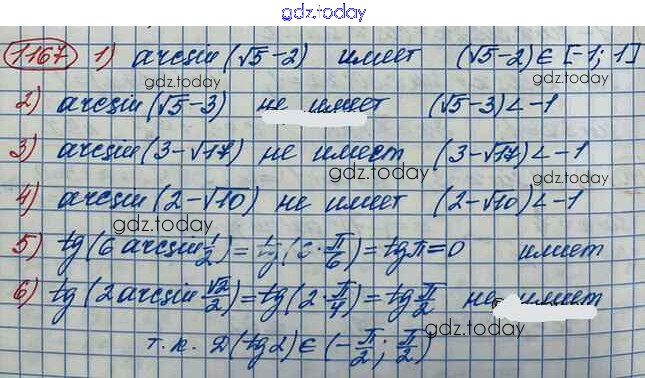 gdz.today
1167 1) arcsin(√5-2) имеет (√5-2)∈[-1; 1]
gdz.today gdz.today
2) arcsin(√5-3) не имеет (√5-3)<-1
3) arcsin(3-√17) не имеет (3-√17)<-1
gdz.today
4) arcsin(2-√10) не имеет (2-√10)<-1
gdz.today
5) tg(6 arcsin 1/2)= tg(6·π/6)=tgπ=0 имеет
6) tg(2arcsin √2/2)=tg(2·π/4)=tg π/2 не имеет
gdz.today
т.к. D(tg2)∈(-π/2; π/2)